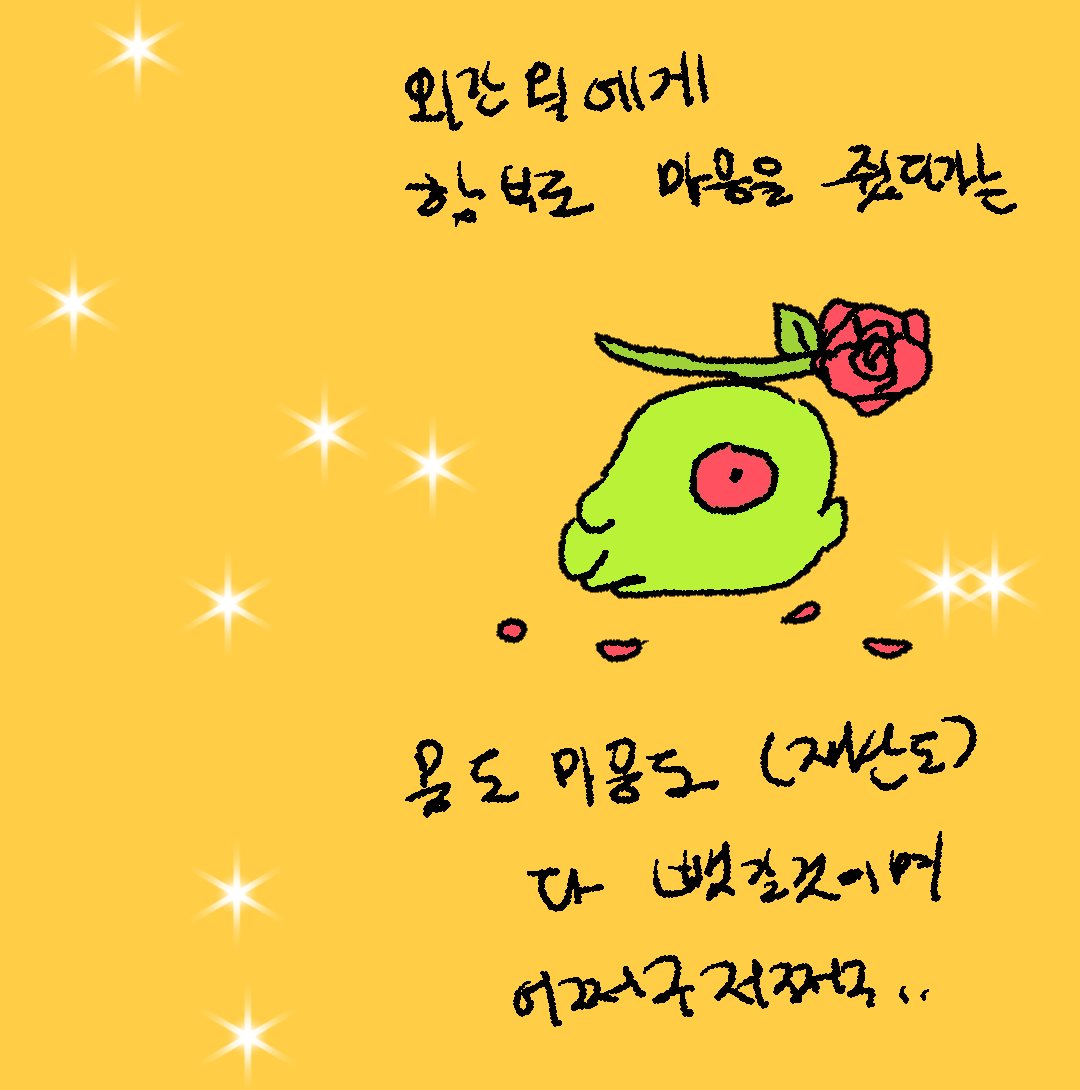 외간의에게
함부로 마음을 줬다가는
몸도 마음도 (재산도)
다 뺏길것이며
어쩌구저쩌구..